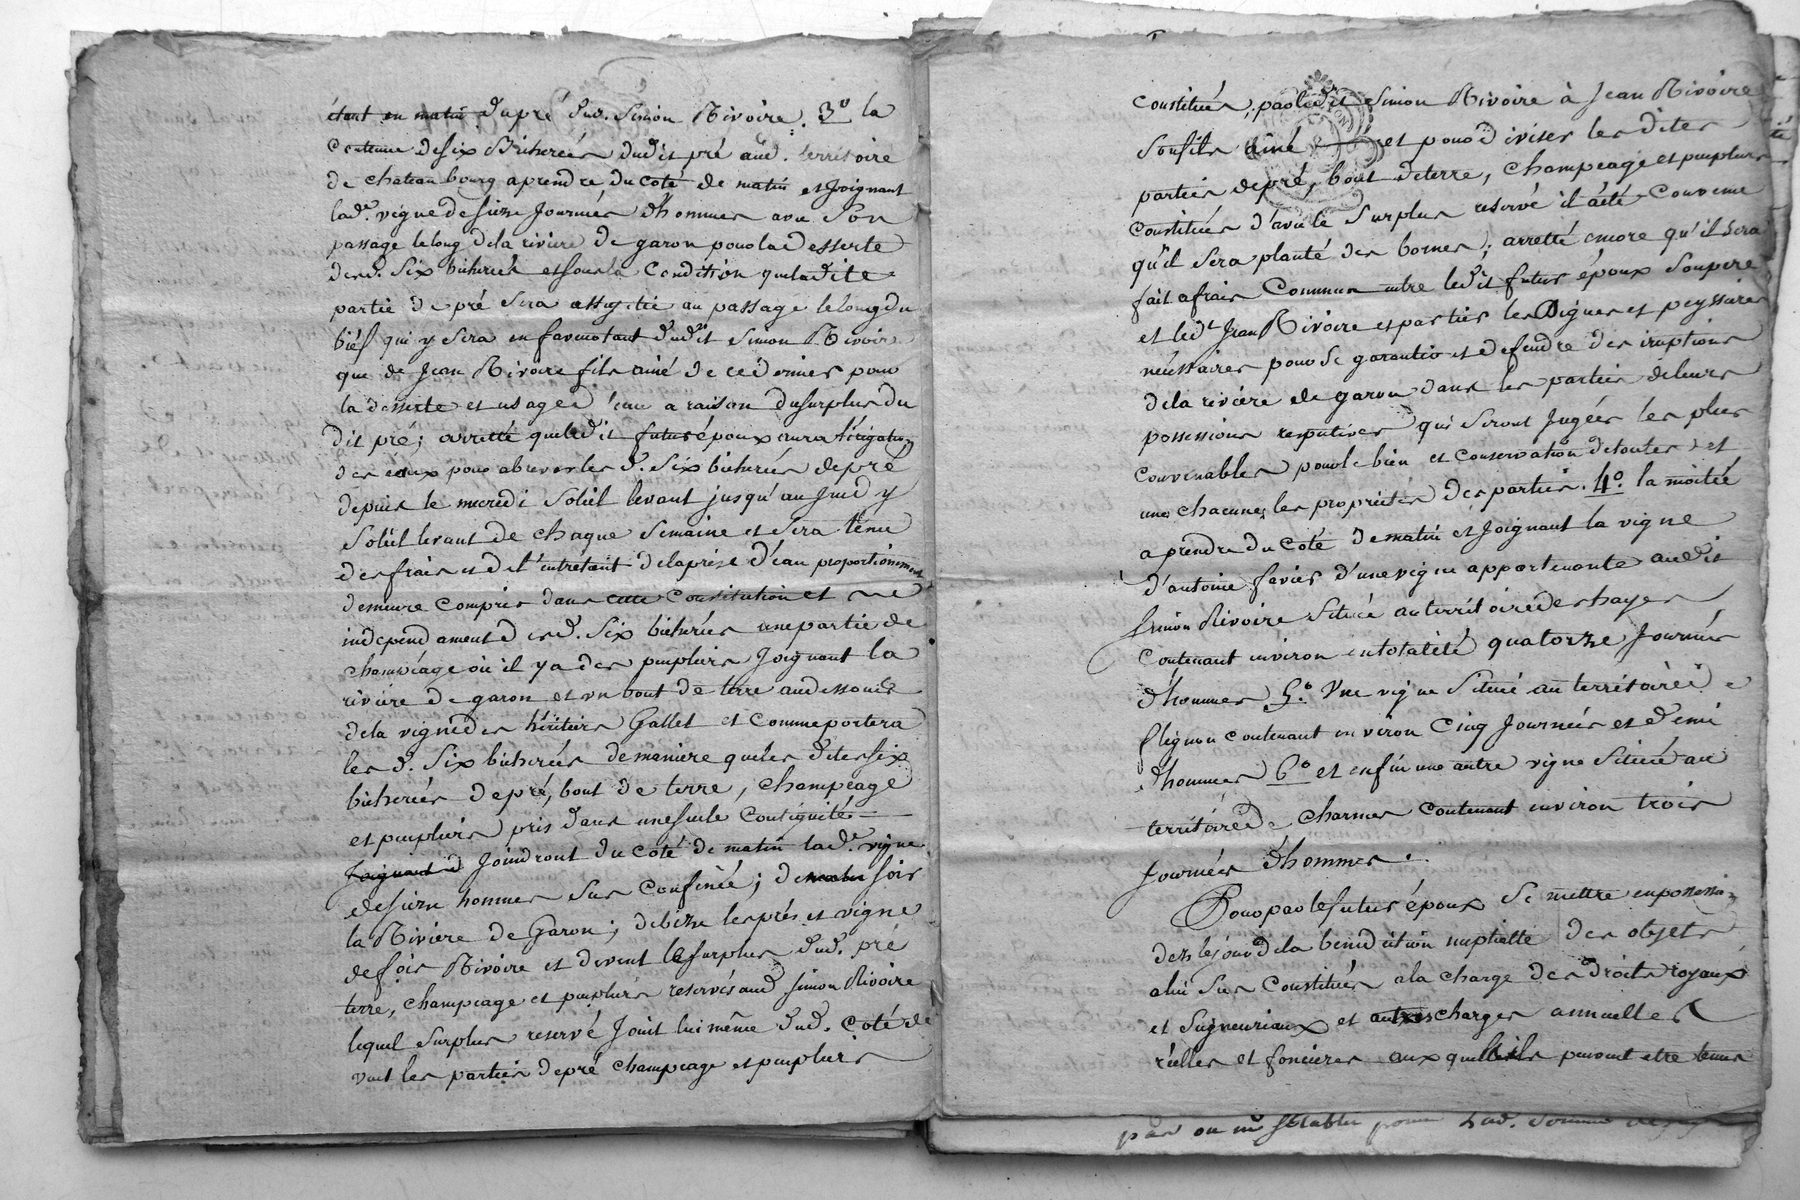 étant en matin du pré dud. Simon Rivoire. 3º la
Contenue de six Bicherées dudit pré aud. territoire
de chateau bourg aprendre du coté de matin et Joignant
lad.e vigne de seize Journées d'hommes avec Son
passage le long de la riviere de garon pour la desserte
desd. Six bicherées et sous la Condition que ladite
partie de pré Sera assujetie au passage le long du
bief qui y Sera en faveur tant dudit Simon Rivoire
que de Jean Rivoire fils ainé de ce dernier pour
la desserte et usage d'eau a raison du surplus du
dit pré; arretté que ledit futur époux aura l'irrigation
des eaux pour abrever les d. Six bicherées de pré
depuis le mecredi Soleil levant jusqu'au Jeudy
Soleil levant de chaque Semaine et Sera tenu
des frais et de l'entretient de la prise d'eau proportionnement
demeure compris dans cette Constitution et
independament desd. Six bicherées une partie de
champéage où il y a des peupliers Joignant la
riviere de garon et un bout de terre au dessous
de la vigne des héritiers Gallet et Comme portera
les d. Six bicherées de maniere que les dites six
bicherées de pré, bout de terre, champéage
et peupliers pris dans une seule Contiguité
Joignant d Joindront du coté de matin lad.e vigne
de seize hommes sus confinée; de soir
la Riviere de Garon; de bize les prés et vigne
de fois Rivoire et de vent le surplus dud. pré
terre, champeage et peupliers reservés aud Simon Rivoire
lequel Surplus reservé Joint lui même dud. coté de
vent les parties de pré champeage et peupliers
Constitués, par ledit Simon Rivoire à Jean Rivoire
Son fils ainé et pour diviser les dites
parties de pré, bout de terre, champeage et peupliers
Constitués d'avec le Surplus reservé il a été Convenu
qu'il Sera planté des bornes; arretté encore qu'il Sera
fait a frais Commun entre ledit futur époux Son pere
et led.t Jean Rivoire et parties les Digues et peyssieres
nécessaires pour Se garantir et defendre des iruptions
de la riviere de garon dans les parties de leurs
possessions respectives qui Seront Jugées les plus
Convenables pour le bien et Conservation de toutes et
une chacunes les propriétés des parties. 4º. la moitié
a prendre du Coté de matin et Joignant la vigne
d'antoine favier d'une vigne appartenante audit
Simon Rivoire Située au territoire des hayes
Contenant environ en totalité quatorze Journées
d'hommes 5.º Une vigne Située au territoire de
flegnon Contenant environ Cinq Journées et demi
d'hommes 6º et enfin une autre vigne Située au
territoire de charmes Contenant environ trois
Journées d'hommes.
Pour par le futur époux Se mettre en possession
dez le jour de la benediction nuptialle des objets
a lui Sus Constitués a la charge des droits royaux
et Seigneuriaux et autres charges annuelles
réelles et foncieres auxquelles ils peuvent etre tenus